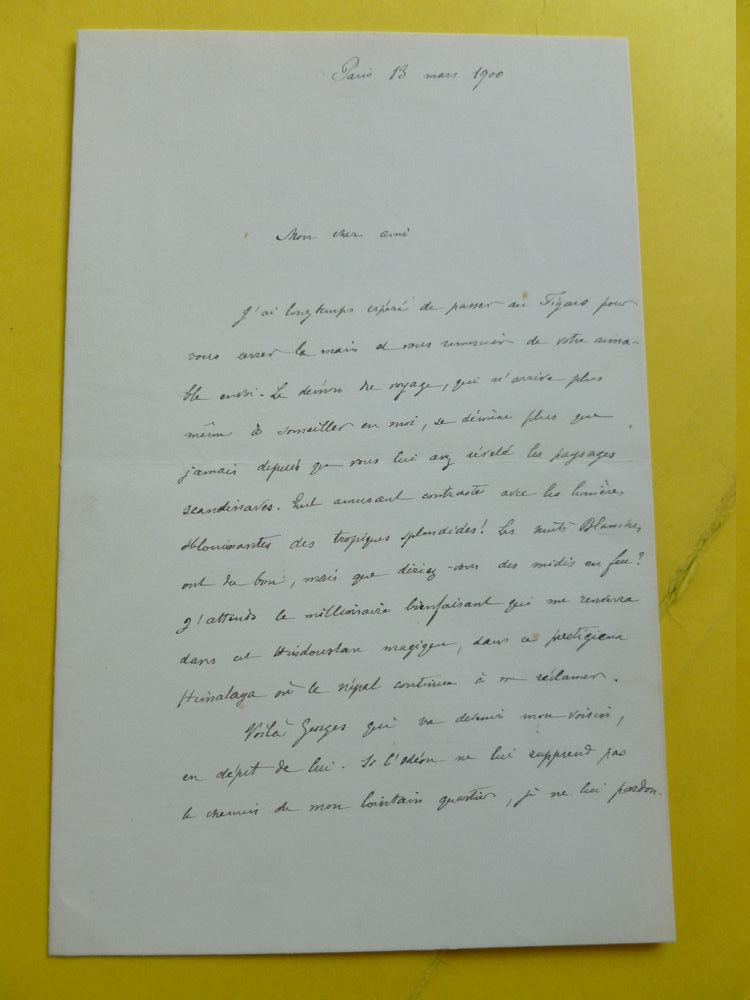 Paris 13 mars 1900
Mon cher ami
J'ai longtemps espéré de passer au Figaro pour
vous serrer la main et vous remercier de votre aima-
ble envoi. Le démon du voyage, qui n'arrive plus
même à sommeiller en moi, se démène plus que
jamais depuis que vous lui avez révélé les paysages
scandinaves. Quel amusant contraste avec les lumières
éblouissantes des tropiques splendides! Les nuits Blanches
ont du bon, mais que diriez-vous des midis en feu?
J'attends le millionnaire bienfaisant qui me renverra
dans cet Hindoustan magique, dans ce prestigieux
Himalaya où le Népal continue à me réclamer.
Voilà Georges qui va devenir mon voisin,
en dépit de lui. Si l'Odéon ne lui rapprend pas
le chemin de mon lointain quartier, je ne lui pardon-